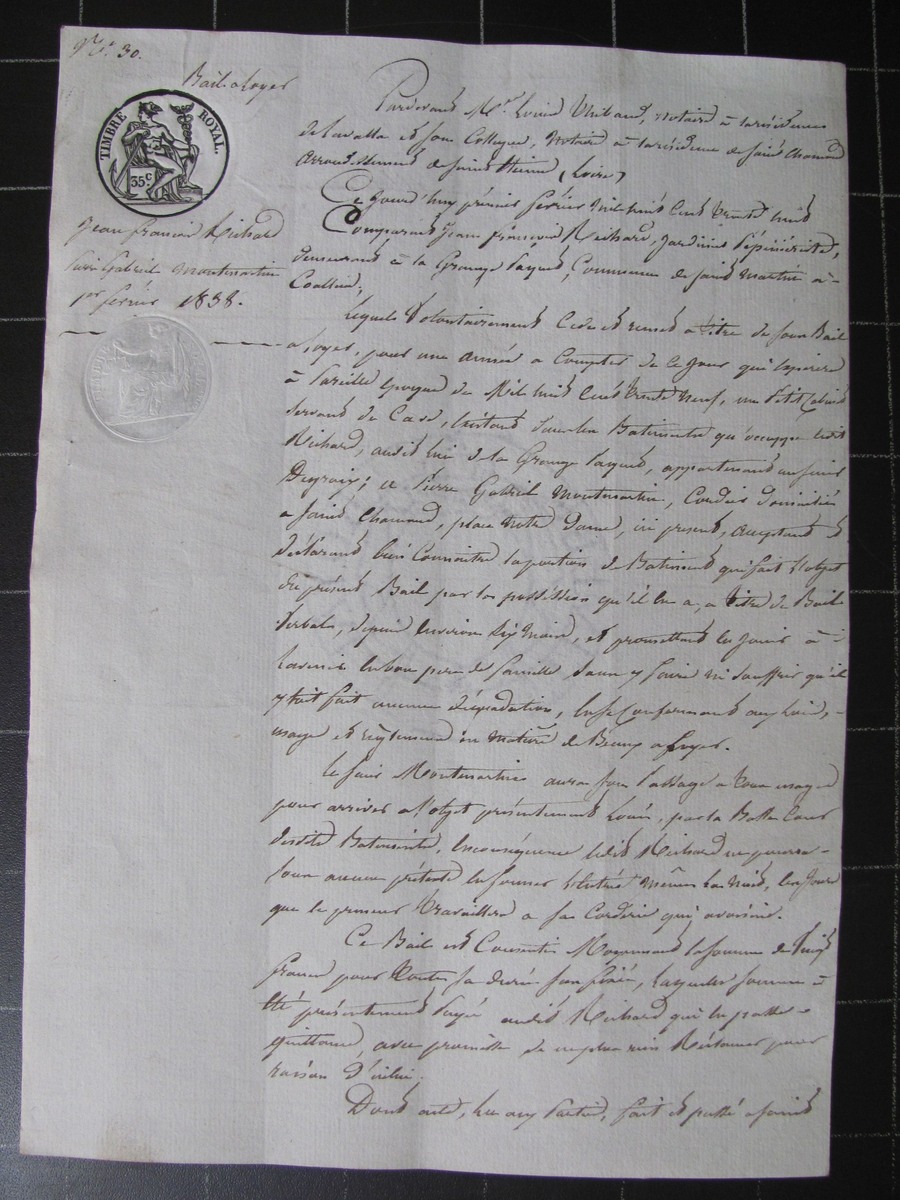 N.° 30.
Bail a loyer
TIMBRE ROYAL.
35 c
Jean François Richard
Pierre Gabriel Montmartin
1er février 1838.
Pardevant Me Louis Thibaud, notaire à la résidence
de Lavalla et son Collegue, notaire à la résidence de saint Chamond
arrondissement de saint Etienne, (Loire)
Ce Jourd'huy premier février mil huit cent trente huit
Comparait Jean François Richard, Jardinier Pépiniériste,
demeurant à la Grange Payre, Commune de saint Martin à-
Coallieu;
Lequel Volontairement Cede et remet a titre de sous Bail
a loyer, pour une année a Compter de ce Jour qui expirera
à Pareille époque de Mil huit Cent trente neuf, un Petit Cabinet
servant de Cave, existant dans les Batiments qu'occuppe ledit
Richard, audit lieu de la Grange Payre, appartenant au sieur
Degraix; a Pierre Gabriel Montmartin, Cordier domicilié
a saint Chamond, place notre Dame, ici present, acceptant et
déclarant bien Connoitre la portion de Batiment qui fait l'objet
du présent Bail par la possession qu'il en a, a titre de Bail
Verbal, depuis environ six mois, et promettant en Jouir à
l'avenir en bon pere de famille sans y faire ni souffrir qu'il
y soit fait aucune dégradation, en se Conformant aux Lois,
usage et réglement en matière de Beaux a Loyer.
Le sieur Montmartin aura son Passage a tous usages
pour arriver a l'objet présentement Loué, par la Basse Cour
desdits Batiments, en conséquence ledit Richard ne pourra
sous aucun prétexte en fermer l'entrée même la nuit, les Jours
que le preneur travaillera a sa Corderie qui avoisine.
Ce Bail est Consenti Moyennant la somme de
francs pour toute sa durée sus fixée, laquelle somme a
été présentement Payée audit Richard qui en passe
quittance, avec promesse de ne plus rien Réclamer pour
raison d'icelui.
Dont acte, lu aux Parties, fait et passé a saint